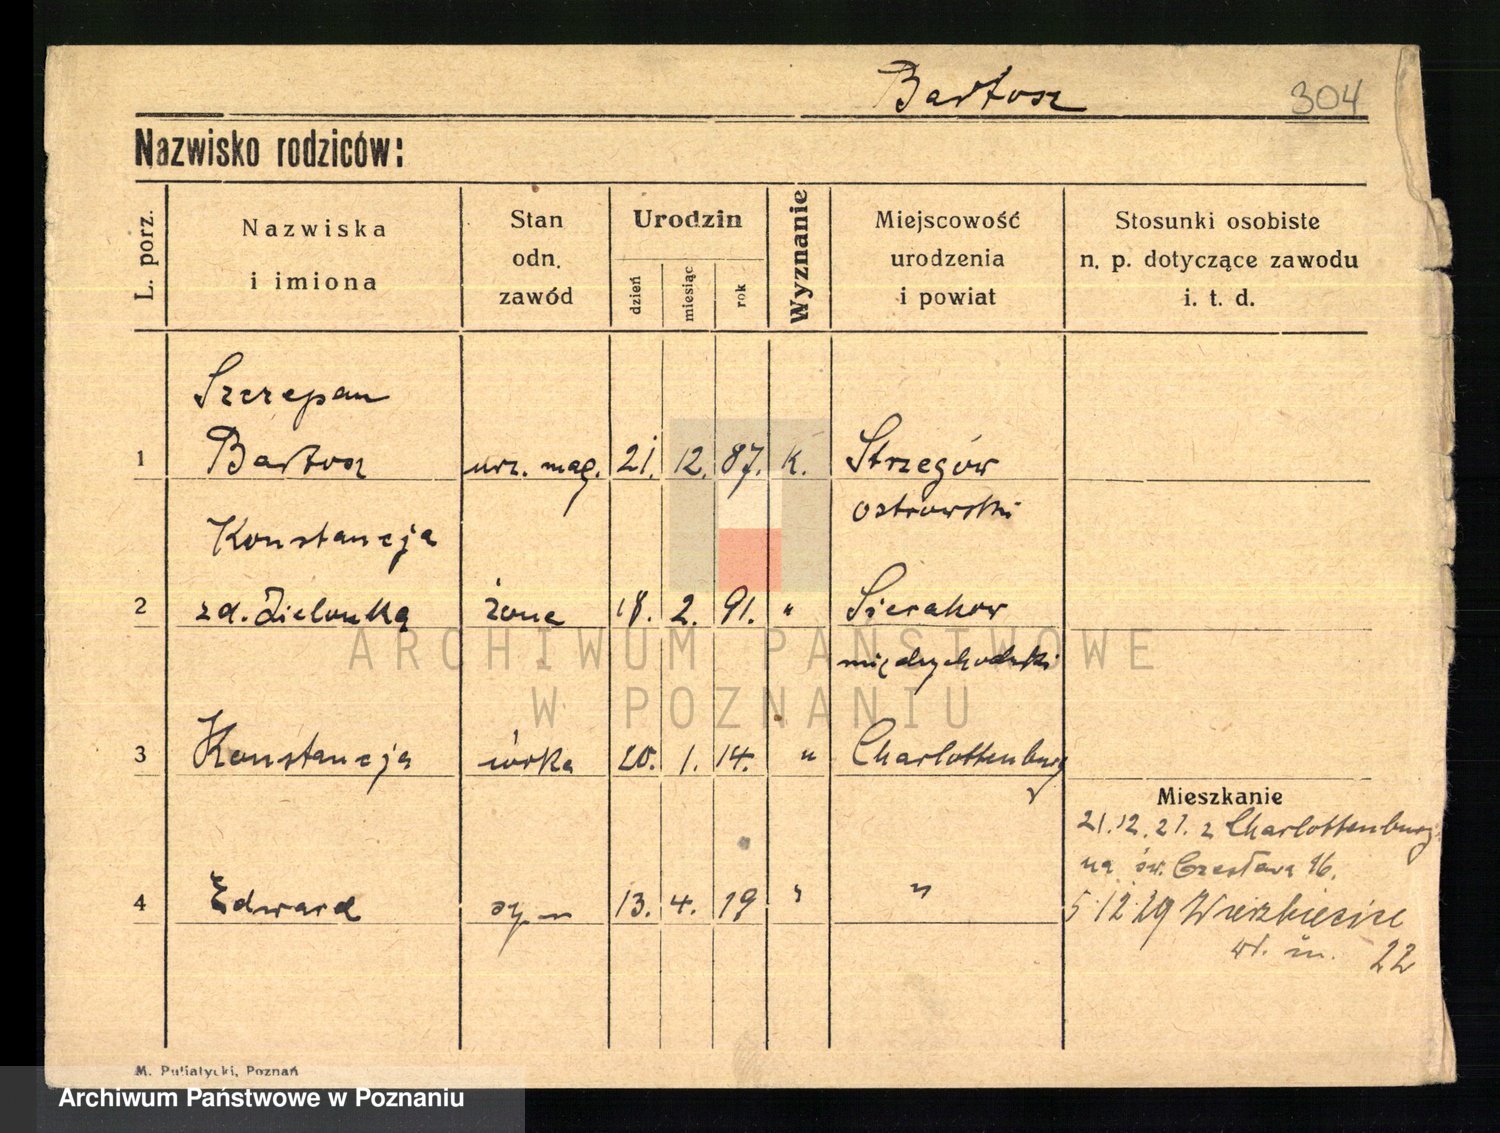 Bartosz 304
Nazwisko rodziców:
L. porz.
Nazwiska
i imiona
Stan
odn.
zawód
Urodzin
dzień
miesiąc
rok
Wyznanie
Miejscowość
urodzenia
i powiat
Stosunki osobiste
n. p. dotyczące zawodu
i. t. d.
Szczepan
1 Bartosz urz. mag. 21. 12. 87. K. Strzegów
ostrowski
Konstancja
2 zd. Zielonką żona 18. 2. 91. " Sierakow
międzychodzki
3 Konstancja córka 20. 1. 14. " Charlottenburg
Mieszkanie
21.12.21. z Charlottenburg
na św. Czesława 16.
4 Edward syn 13. 4. 19 " "
5 12 29 Wierzbięcice
22
M. Putiatycki, Poznań
ARCHIWUM PAŃSTWOWE
W POZNANIU
Archiwum Państwowe w Poznaniu